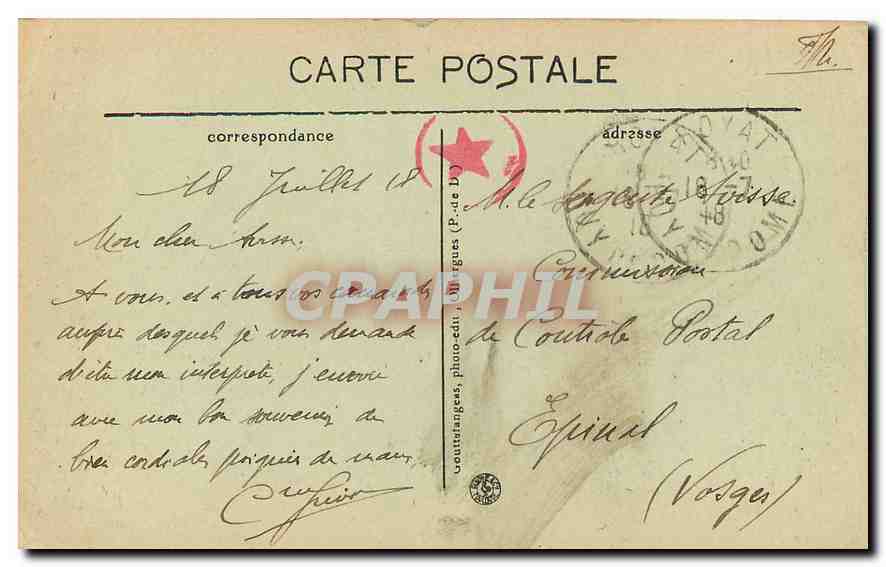 CARTE POSTALE
correspondance
adresse
18 Juillet 18
Mon cher
A vous, et à tous vos camarades
auprès desquels je vous demande
d'être mon interprète, j'envoie
avec mon bon souvenir de
bien cordiales poignées de mains
M. le Sergent
Commission
de Contrôle Postal
Epinal
(Vosges)
Gouttefangeas, photo-edit., Olliergues (P.-de-D.)
ROYAT
18 -7
18
DOME
CPAPHIL